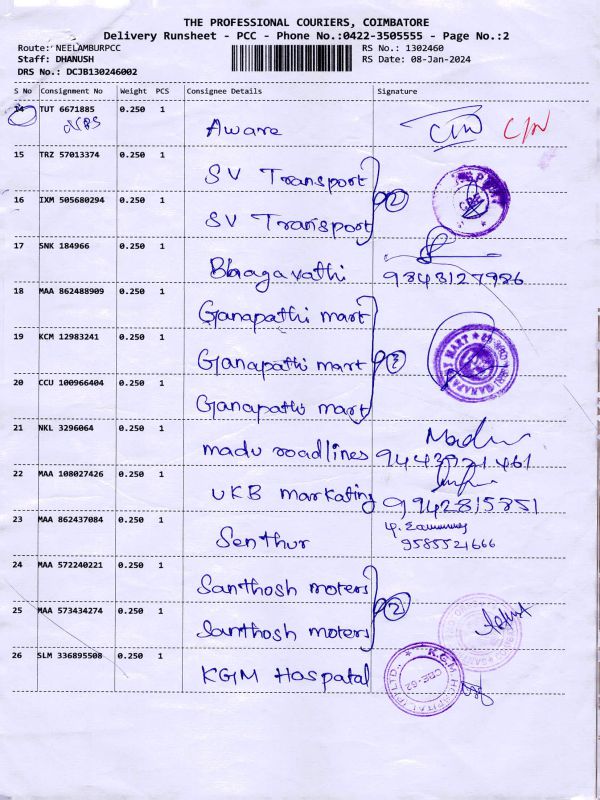 THE PROFESSIONAL COURIERS, COIMBATORE
Delivery Runsheet - PCC - Phone No.:0422-3505555 - Page No.:2
Route: NEELAMBURPCC RS No.: 1302460
Staff: DHANUSH RS Date: 08-Jan-2024
DRS No.: DCJB130246002
S No Consignment No Weight PCS Consignee Details Signature
14 TUT 6671885 0.250 1 Aware
15 TRZ 57013374 0.250 1 SV Transport
16 IXM 505680294 0.250 1 SV Transport 2
17 SNK 184966 0.250 1 Bhagavathi 9843127986
18 MAA 862488909 0.250 1 Ganapathi mart
19 KCM 12983241 0.250 1 Ganapathi mart 3
20 CCU 100966404 0.250 1 Ganapathi mart
21 NKL 3296064 0.250 1 madu roadlines Madhu
22 MAA 108027426 0.250 1 UKB markating 9942815851
23 MAA 862437084 0.250 1 Senthur 9585521666
24 MAA 572240221 0.250 1 Santhosh moters
25 MAA 573434274 0.250 1 Santhosh moters 2
26 SLM 336895508 0.250 1 KGM Haspatal
K.G.M. HOSPITAL (P) LTD.
CBE-62